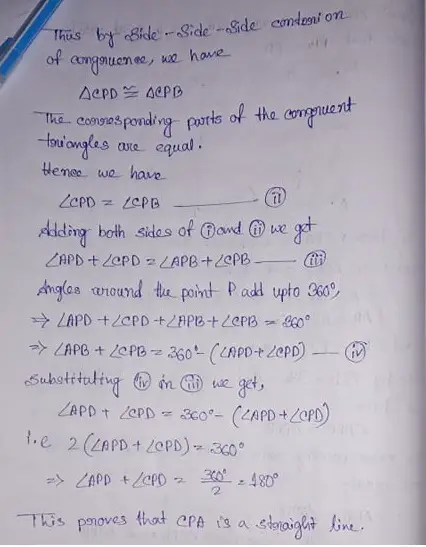 Thus by Side-Side-Side condition
of congruence, we have
△CPD ≅ △CPB
The corresponding parts of the congruent
triangles are equal.
Hence we have
∠CPD = ∠CPB —— (ii)
Adding both sides of (i) and (ii) we get
∠APD + ∠CPD = ∠APB + ∠CPB —— (iii)
Angles around the point P add upto 360°,
⇒ ∠APD + ∠CPD + ∠APB + ∠CPB = 360°
⇒ ∠APB + ∠CPB = 360° - (∠APD + ∠CPD) — (iv)
Substituting (iv) in (iii) we get,
∠APD + ∠CPD = 360° - (∠APD + ∠CPD)
i.e 2(∠APD + ∠CPD) = 360°
⇒ ∠APD + ∠CPD = 360°/2 = 180°
This proves that CPA is a straight line.